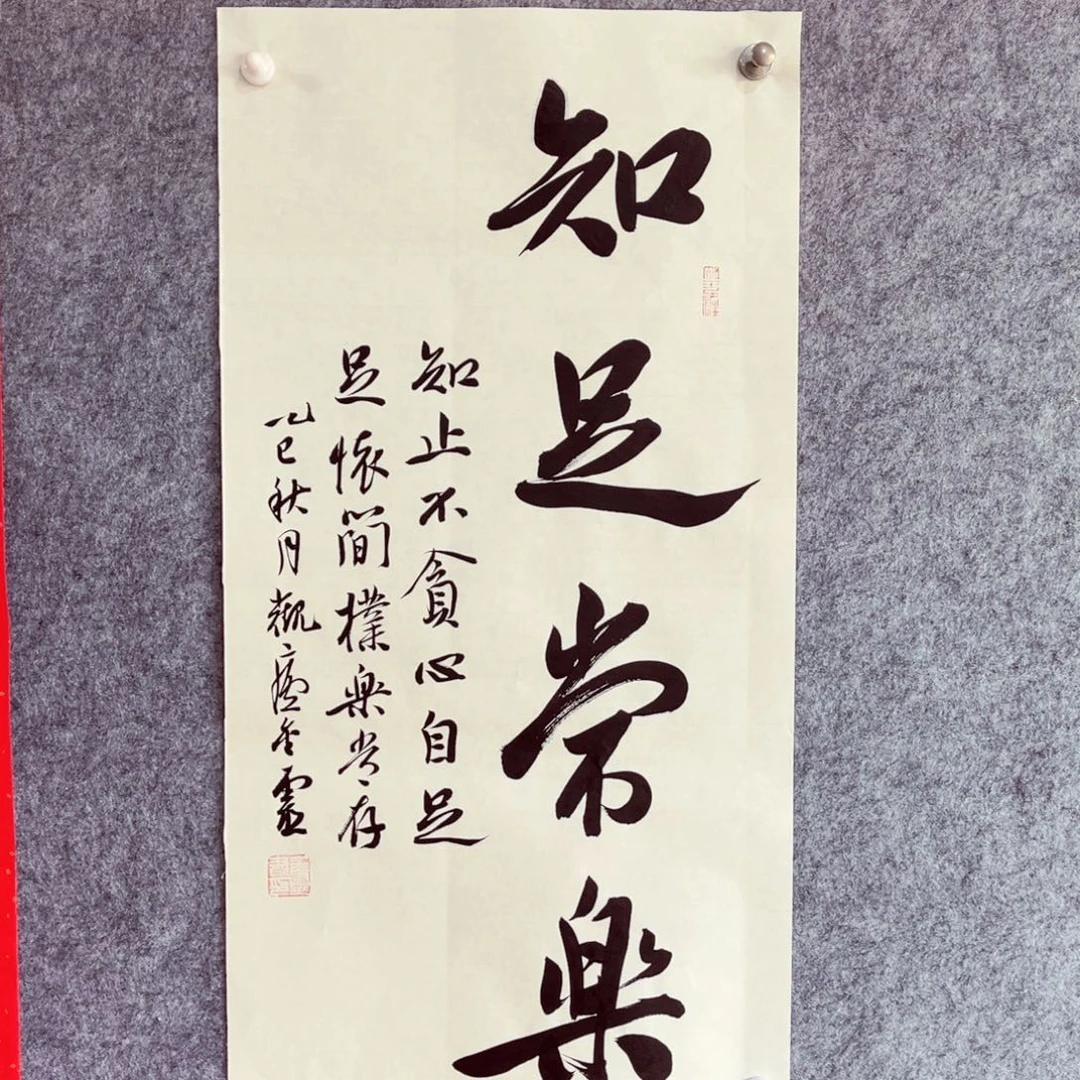 知足常樂
知止不貪心自足
足懷簡樸樂常存
乙巳秋月觀